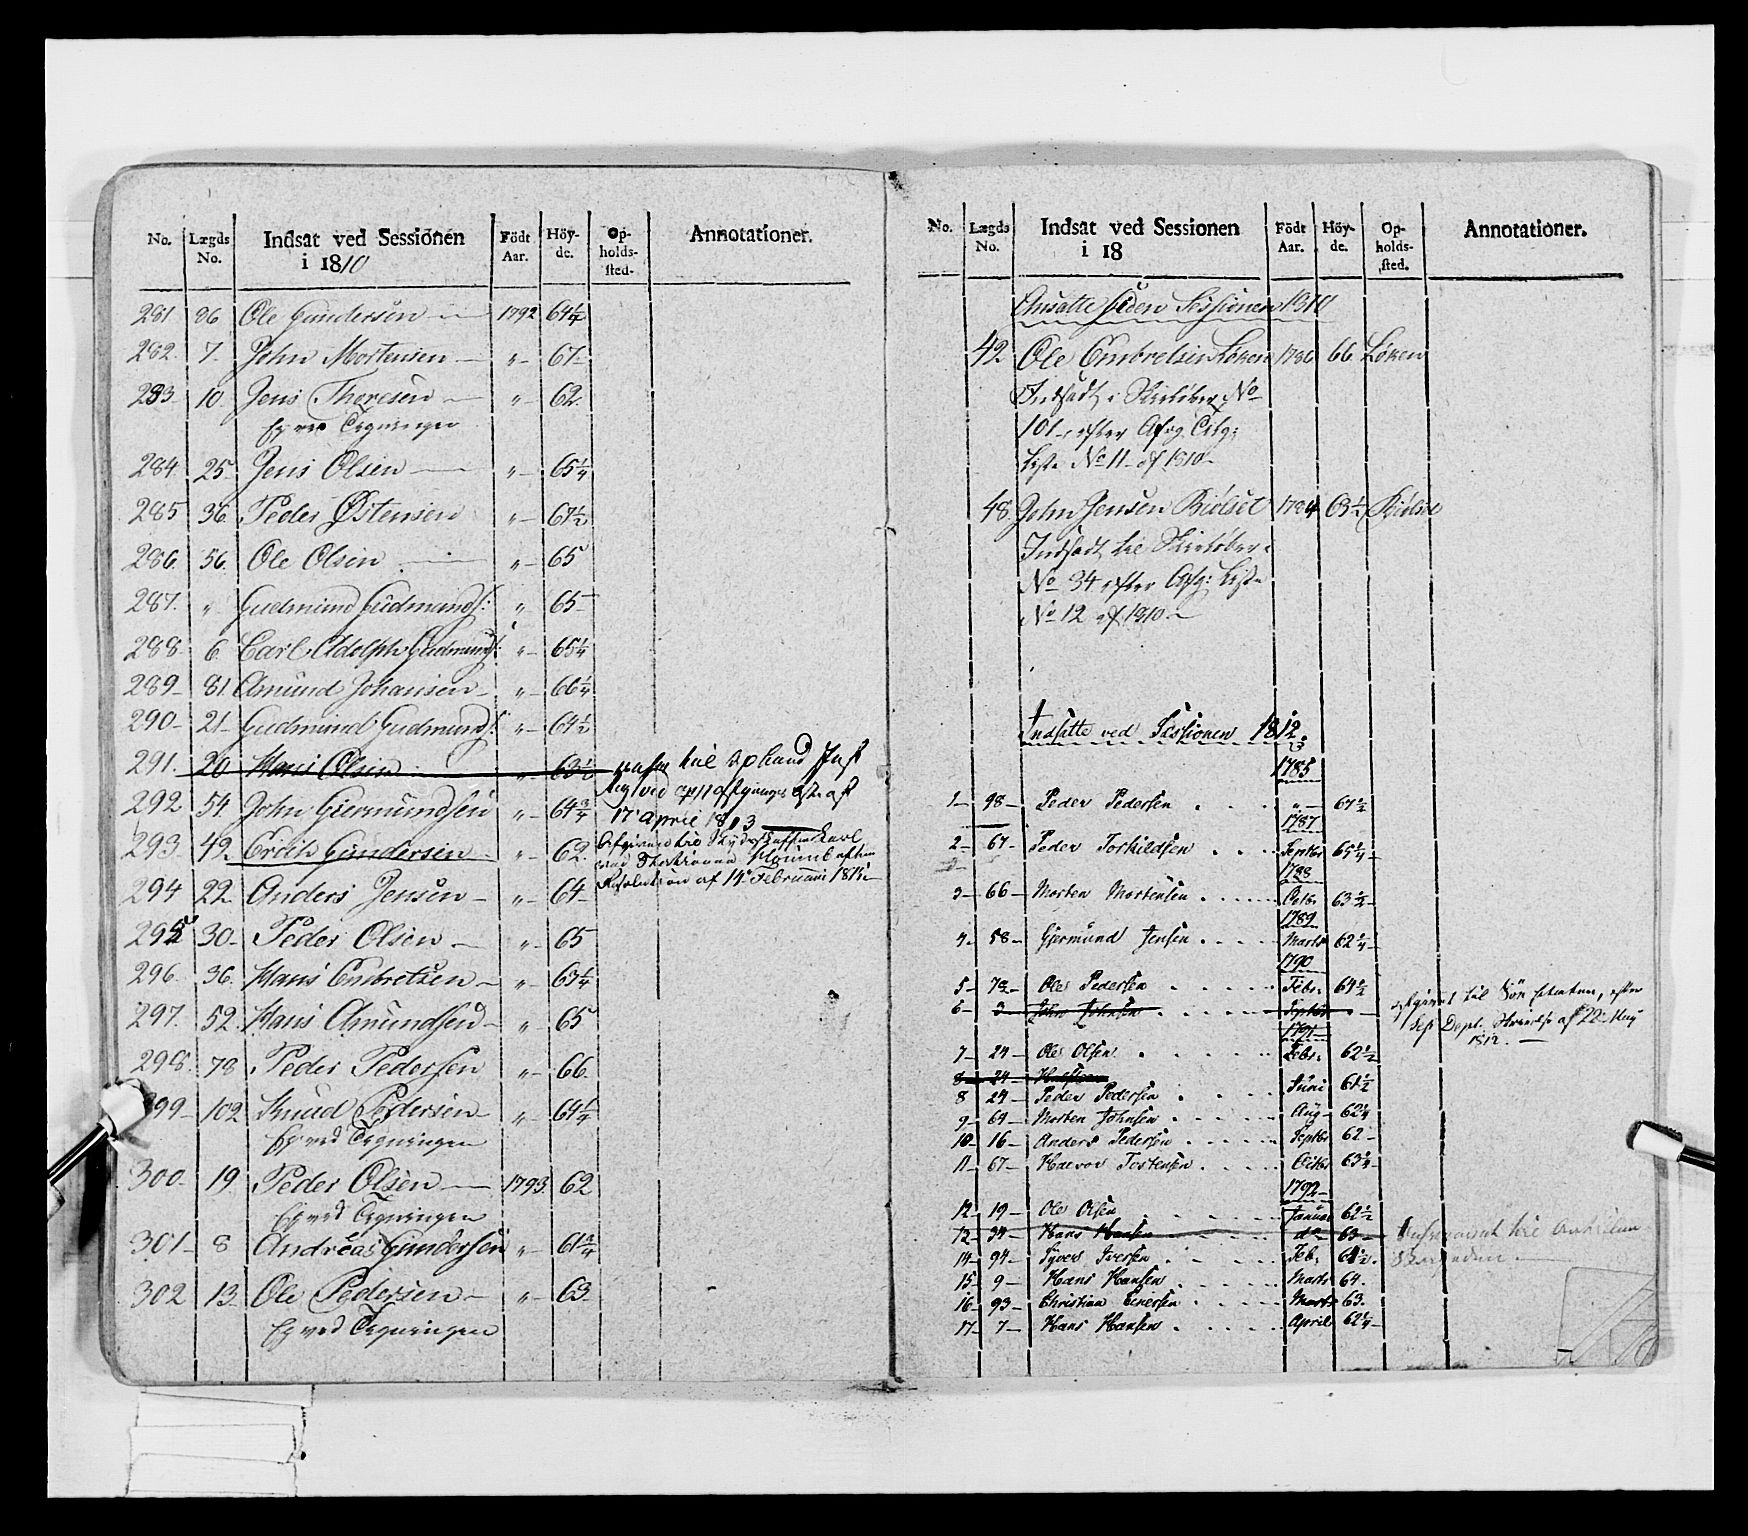 No. Lægds No. Indsat ved Sessionen i 1810 Födt Aar. Höy-de. Op-holds-sted. Annotationer.
281. 86 Ole Gundersen — 1792 64 1/4
282. 7. John Mortensen — „ — 67.
283. 10. Jens Thoresen — „ — 62.
Ej ved Tegningen
284. 25. Jens Olsen — „ — 65 1/4
285 36. Peder Østensen „ — 67 1/2
286. 56. Ole Olsen — „ — 65
287. „ Gudmund Gudmunds: „ 65 —
288. 6. Carl Adolph Gudmunds: „ — 65 1/4
289 — 81. Amund Johansen — „ — 66 1/4
290 — 21 — Gudmund Gudmunds: „ — 64 1/2
291. 20 Hans Olsen „ 63 1/2
292 54. John Giermundsen „ — 64 3/4 17 April 1813
293. 49. Erich Gundersen „ — 62.
294 22. Anders Jensen — „ — 64 — Resolution af 14 Februari 1812
295 30 — Peder Olsen — „ — 65
296. 36. Hans Embretsen — „ — 63 1/4
297. 52. Hans Amundsen — „ — 65
298. 78 Peder Pedersen „ — 66.
299 — 102 Knud Pedersen — „ — 64 1/4
Ej ved Tegningen
300. 19. Peder Olsen — 1793. 62
Ej ved Tegningen
301 — 8 Andreas Gundersen „ — 61 3/4
302 13. Ole Pedersen — „ — 63.
Ej ved Tegningen
No. Lægds No. Indsat ved Sessionen i 18 Födt Aar. Höy-de. Op-holds-sted. Annotationer.
Ansatte siden Sessionen 1810
42. Ole Embretsen Løken 1786 66 Løken
Indsadt i No
101 efter Afg:
Liste No 11 af 1810 —
48. John Jensen Kiølset 1784 63 1/2 Kiølset
Indsadt
No 34 efter Afg: Liste
No 12 af 1810 —
Indsatte ved Sessionen 1812.
1785
1 — 98 — Peder Pedersen . . . „ — 67 1/2
1787
2 — 67 — Peder Torkildsen . . . Septbr 65 1/4 —
1788
3 — 66 — Morten Mortensen . . . . Octbr 63 1/2 —
1789
4 — 58 — Giermund Jensen . . . . Marts 62 1/4 —
1790
5 — 72 — Ole Pedersen . . . . . Febr. 64 1/2
6 — 3 — John Johnsen . . . . . Septbr — til Søe Etaten, efter
af 22 May
1791 1812. —
7 — 24 — Ole Olsen . . . . . Febr. 62 1/2
8 — 24 —
8 24 — Peder Pedersen . . . Juni 61 1/2
9 — 69 — Morten Johnsen . . . . . Aug — 62 1/4
10 — 16 — Anders Pedersen . . . . . Septbr 62 —
11 — 67 — Halvor Tostensen . . . . Octbr 63 1/4 —
1792 —
12 — 19 — Ole Olsen . . . . Januar 62 1/2
12 — 34 — Hans Hansen do — 63 —
14 — 94 — Syver Iversen . . . Feb. 61 1/2.
15 — 9 — Hans Hansen . . . . . Marts 64.
16 — 93 — Christian Einersen . . . . . Marts 63.
17 — 7 — Hans Hansen . . . . . April 62 1/4 —